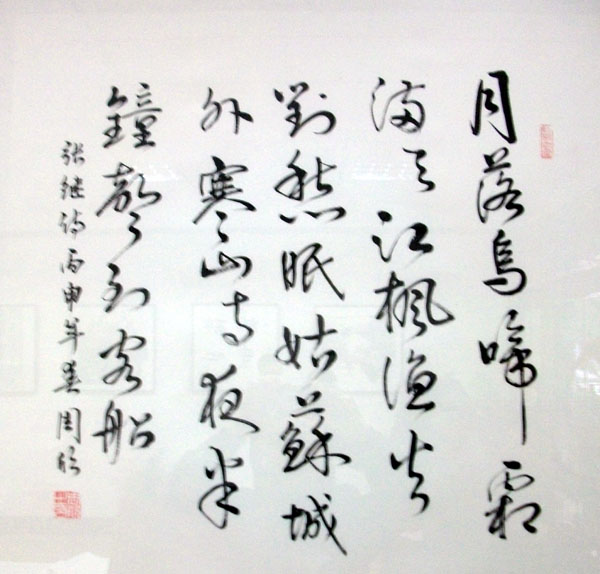 月落烏啼霜
滿天江楓漁火
對愁眠姑蘇城
外寒山寺夜半
鐘聲到客船
张继诗丙申年周